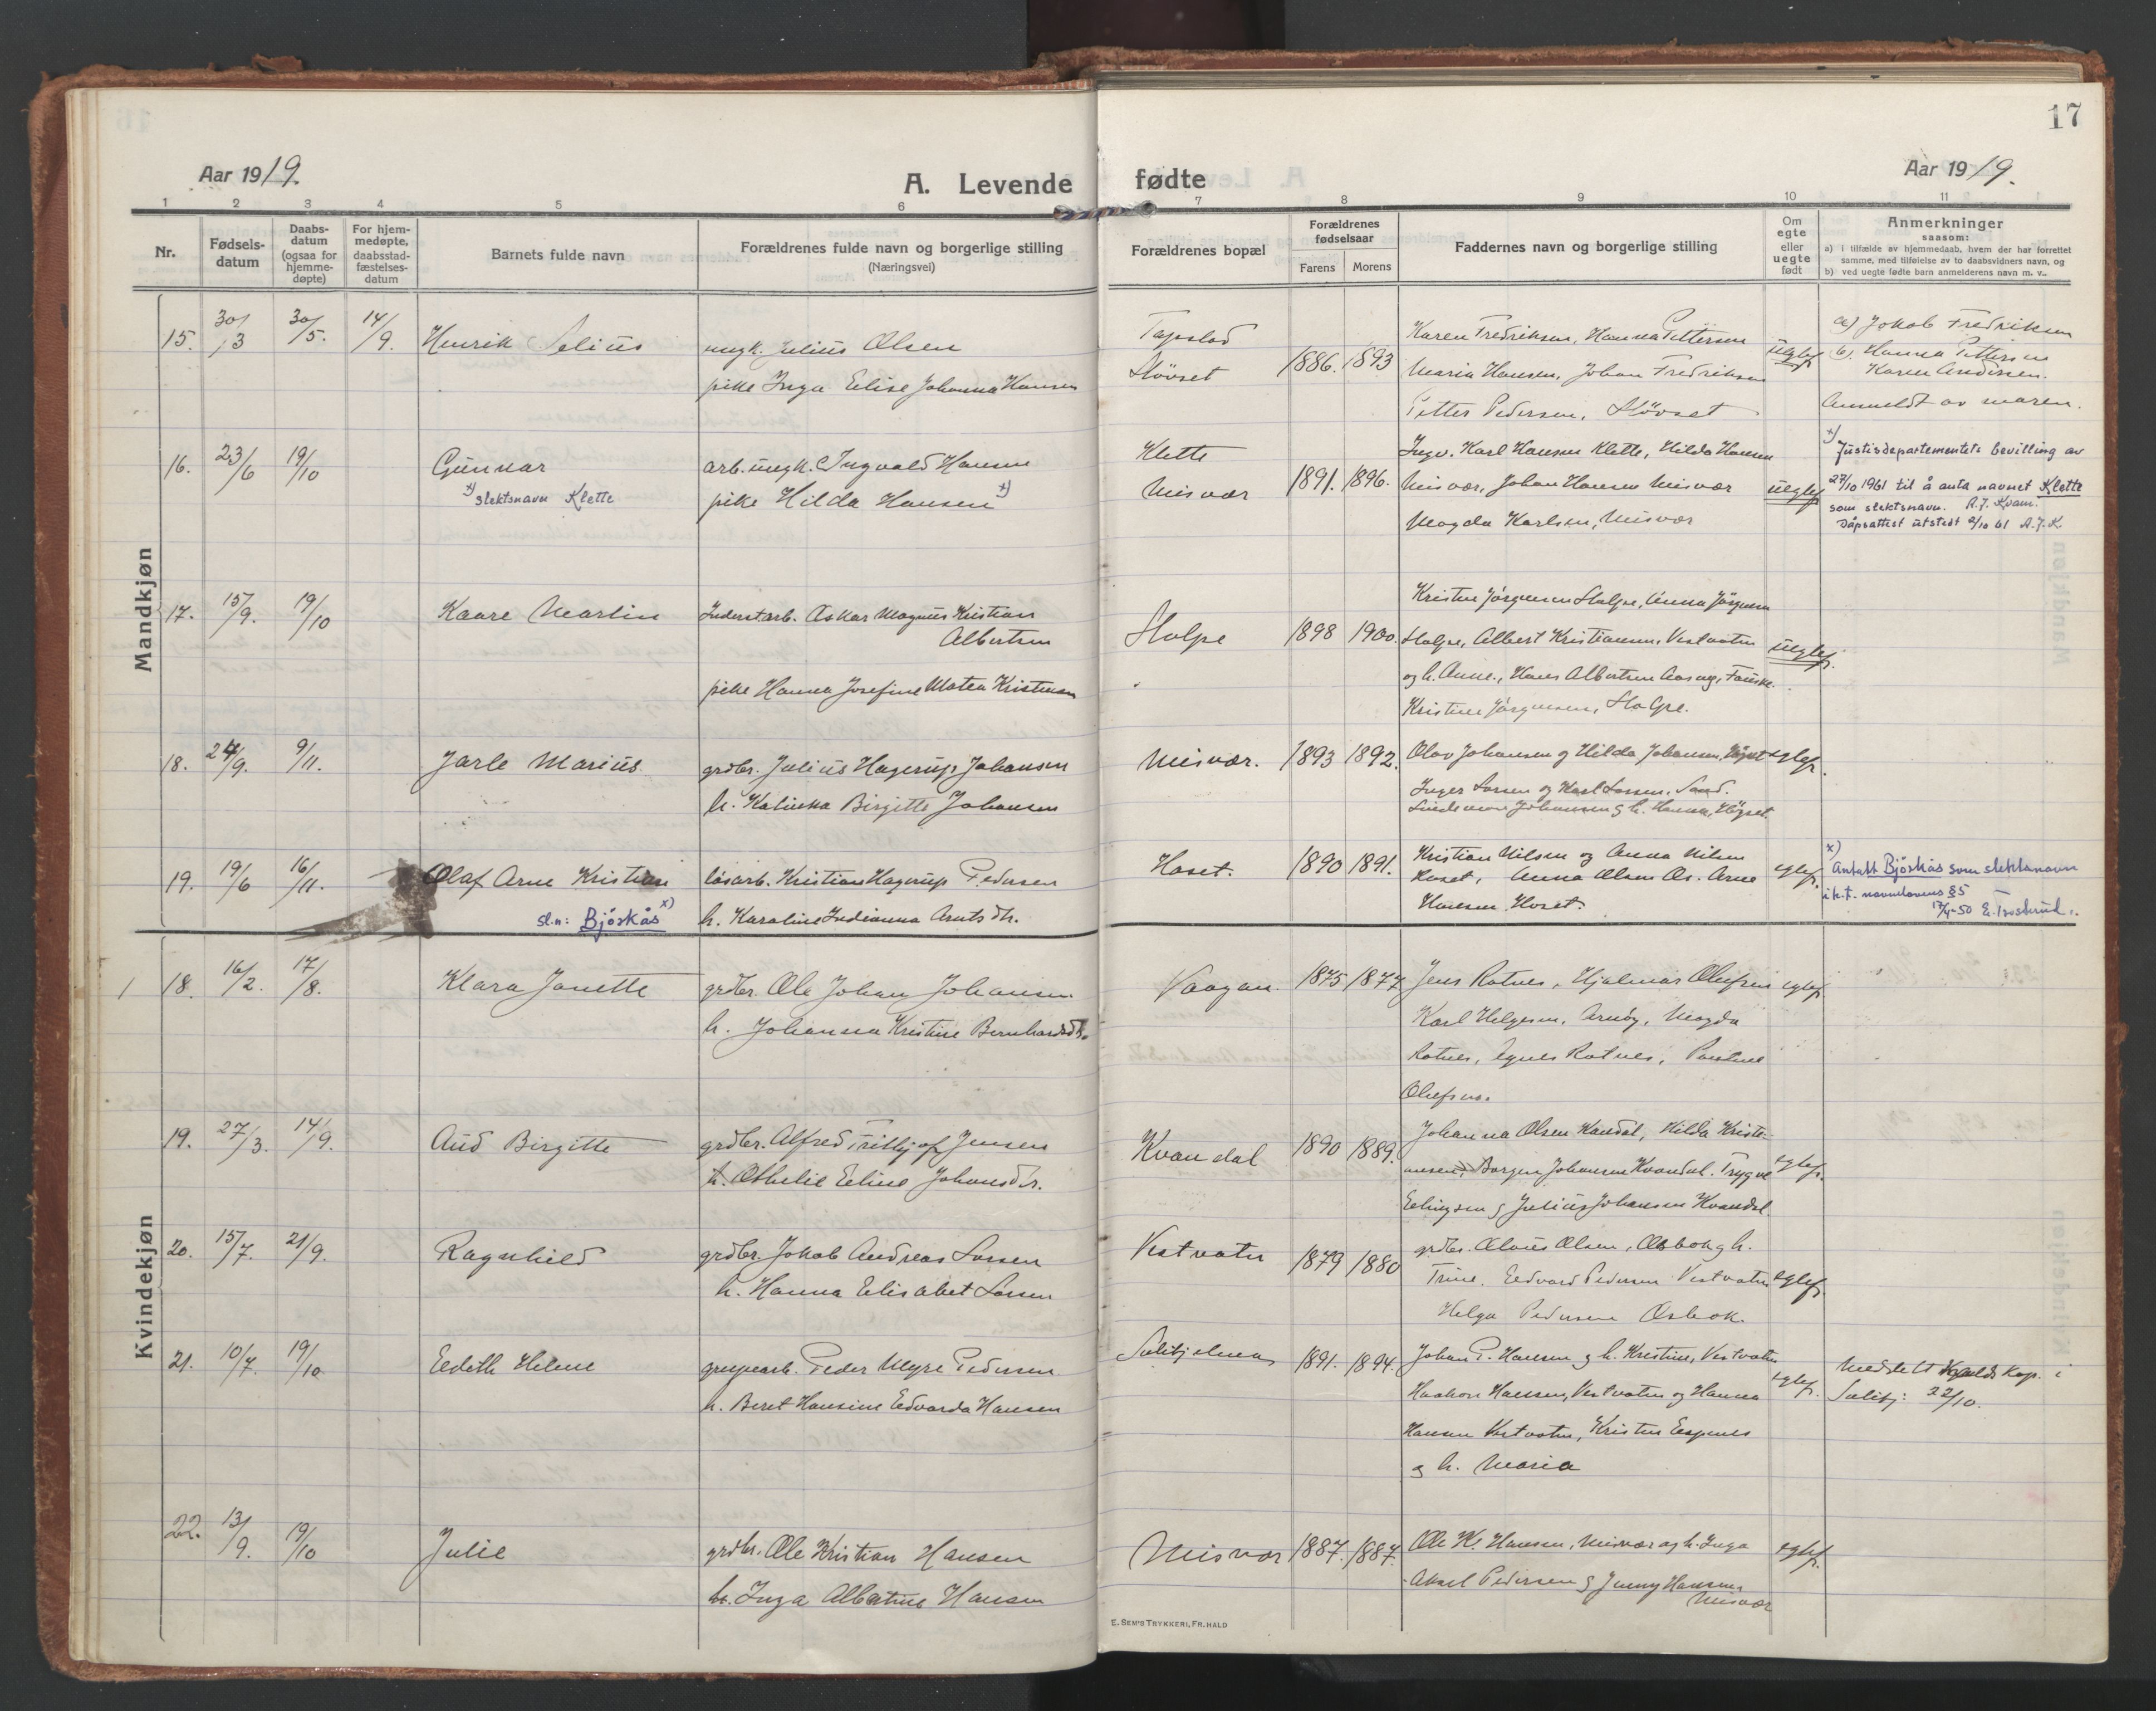 17
Aar 1919.
A. Levende
fødte
Aar 1919.
1 2 3 4 5 6 7 8 9 10 11
Nr.
Fødsels-
datum
Daabs-
datum
(ogsaa for
hjemme-
døpte)
For hjem-
medøpte,
daabsstad-
fæstelses-
datum
Barnets fulde navn
Forældrenes fulde navn og borgerlige stilling
(Næringsvei)
Forældrenes bopæl
Forældrenes
fødselsaar
Farens
Morens
Faddernes navn og borgerlige stilling
Om
egte
eller
uegte
født
Anmerkninger
saasom:
a) i tilfælde av hjemmedaab, hvem der har forrettet
samme, med tilføielse av to daabsvidners navn, og
b) ved uegte fødte barn anmelderens navn m. v..
Mandkjøn
15. 30/3 30/5. 14/9. Henrik Selius
ungk. Julius Olsen
pike Inga Elise Johanna Hansen
Støvset 1886. 1893
Karen Fredriksen, Hanna Pettersen
Maria Hansen, Johan Fredriksen
Petter Pedersen, Støvset
uegtef.
a) Jokob Fredriksen
b) Hanna Pettersen
Karen Andersen.
Anmeldt av moren.
16. 23/6 19/10 Gunnar
x) slektsnavn Klette
arb. ungk. Ingvald Hansen
pike Hilda Hansen x)
Klette
Misvær 1891. 1896.
Ingv. Karl Hansen Klette, Hilda Hansen
Misvær, Johan Hansen Misvær
Magda Karlsen, Misvær
uegtef.
x) Justisdepartementets bevilling av
27/10 1961 til å anta navnet Klette
som slektsnavn. A.J. Kvam.
Dåpsattest utstedt 2/10 61 A.J.K
17. 15/9. 19/10 Kaare Martin
Inderstarb. Oskar Magnus Kristian
Albertsen
pike Hanna Josefine Matea Kristensen
Stolpe 1898 1900.
Kristen Jørgensen Stolpe, Anna Jörgensen
Stolpe, Albert Kristiansen, Vestvatn
og h. Anne., Hans Albertsen Aasng, Fauske.
Kristine Jørgensen, Stolpe.
uegtef.
18. 24/9. 9/11. Jarle Marius.
grdbr. Julius Hagerup Johansen
h. Katinka Birgitte Johansen
Misvær. 1893 1892.
Olav Johansen og Hilda Johansen, Högset
Inger Larsen og Karl Larsen, Sand.
Lindemor Johansen og h. Hanna, Högset.
egtef.
19. 19/6 16/11. Olaf Arne Kristian
sl.n: Bjöskås x)
løsarb. Kristian Hagerup Pedersen
h. Karoline Indianna Arntsdtr.
Hoset. 1890 1891.
Kristian Nilsen og Anna Nilsen
Hoset, Anna Olsen Os. Arne
Hansen Hoset.
egtef.
x) Antatt Bjöskås som slektsnavn
i h.t. navnelovens §5
17/4-50
Kvindekjøn
1 18. 16/2. 17/8. Klara Janette
grdbr. Ole Johan Johansen
h. Johanna Kristine Bernhardsdtr.
Vaagan. 1875 1877
Jens Rotnes, Hjalmar Olufsen
Karl Helgesen, Arnöy, Magda
Rotnes, Agnes Rotnes, Pauline
Olufsen.
egtef.
19. 27/3. 14/9. Aud Birgitte
grdbr. Alfred Fritthjof Jensen
h. Othelie Eline Johansdtr.
Kvandal 1890 1889.
Johanna Olsen Kandal, Hilda Kristi-
ansen, Borgen Johansen Kvandal. Trygve
Ellingsen og Julius Johansen Kvandal.
egtef.
20. 15/7. 21/9. Ragnhild
grdbr. Jokob Andreas Larsen
h. Hanna Elisabet Larsen
Vestvatn 1879 1880
grdbr. Olaus Olsen, Osbok og h.
Trine. Edvard Pedersen Vestvatn
Helga Pedersen Osbok.
egtef.
21. 10/7. 19/10 Edith Helene
grubearb. Peder Myre Pedersen
h. Beret Hansine Edvarda Hansen
Sulitjelma 1891. 1894.
Johan P. Hansen og h. Kristine, Vestvatn
Haakon Hansen, Vestvatn og Hanna
Hansen Vestvatn, Kristen Espenes
og h. Maria
egtef.
Meddelt kap. i
Sulitj: 22/10.
22. 13/9. 19/10 Julie
grdbr. Ole Kristian Hansen
h. Inga Albertine Hansen
Misvær 1887. 1887.
Ole Kr. Hansen, Misvær og h. Inga
Aksel Pedersen og Jenny Hansen,
Misvær
egtef.
E. SEM'S TRYKKERI, FR. HALD